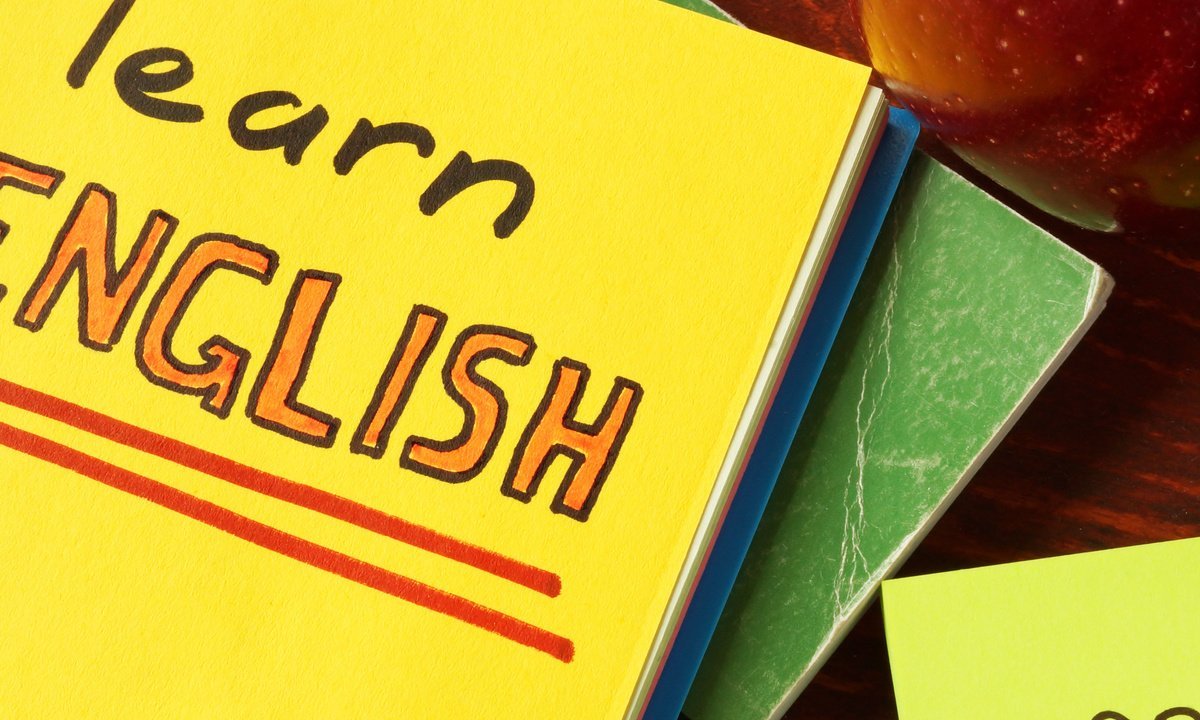 learn
ENGLISH